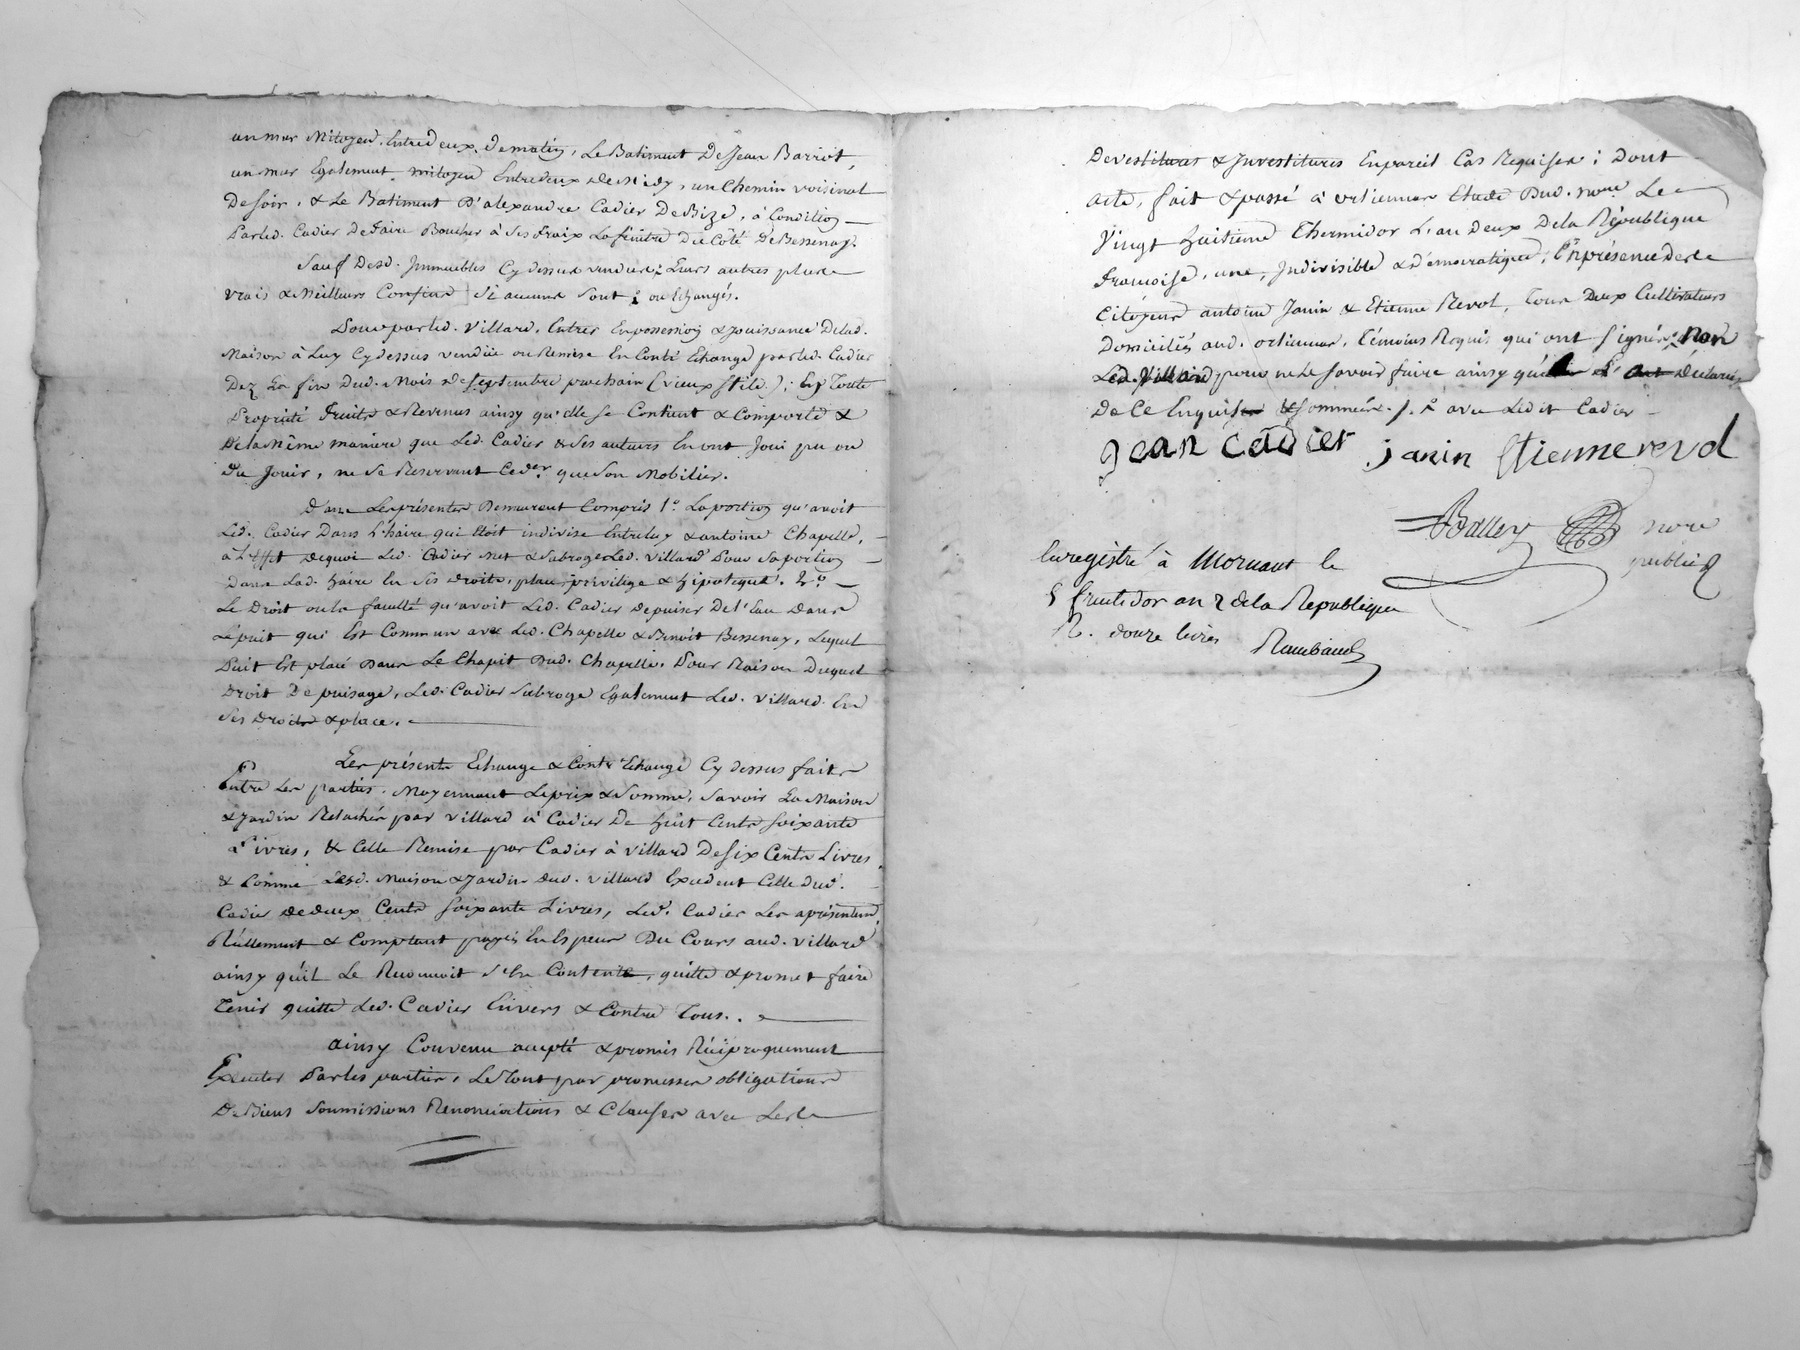 un mur Mitoyen Entredeux, De matin, Le Batiment De Jean Barriot,
un mur Egalement mitoyen Entredeux De Midy, un Chemin voisinal
De soir, & Le Batiment D'alexandre Cadier De Bize, à Condition
Parled. Cadier De faire Boucher à Ses fraix La fenêtre Du Côté De Bessenay.
Sauf Desd. Immeubles Cy dessus vendus; Leurs autres plus
vrais & Meilleurs Confins Si aucuns Sont; ou Echangés.
Pour parled. Villard, Entrer En possession & Jouissance Delad.
Maison à Luy Cy dessus vendüe ou Remise En Contr'Echange parled. Cadier
Dez La fin Dud. Mois De Septembre prochain (vieux Stile); En Toute
Propriété Fruits & Revenus ainsy qu'elle Se Contient & Comporte &
De la Même maniere que Led. Cadier & Ses auteurs En ont Joui pu ou
Du Jouir, ne Se Reservant Ced.er que Son Mobilier.
Dans Les présentes Demeurent Compris 1.° La portion qu'avoit
Led. Cadier Dans L'haire qui Etoit indivise Entre luy & antoine Chapelle,
à L'effet De quoi Led. Cadier Met & Subroge Led. Villard Pour Sa portion
Dans Lad. haire En Ses Droits, place privilége & hipoteque. 2.°
Le Droit ou la faculté qu'avoit Led. Cadier De puiser De l'Eau Dans
Le puit qui Est Commun avec Led. Chapelle & Benoît Bessenay, Lequel
Puit Est placé Dans Le Chapit Dud. Chapelle. Pour Raison Duquel
Droit De puisage, Led. Cadier Subroge Egalement Led. Villard En
Ses Droits & place.
Les présents Echange & Contr'Echange Cy dessus faits
Entre Les parties. Moyennant Le prix & Somme, Savoir La Maison
& Jardin Relachés par Villard à Cadier De huit Cents soixante
Livres, & Celle Remise par Cadier à Villard De six Cents Livres
& Comme Lesd. Maison & Jardin Dud. Villard Excedent Celle Dud.
Cadier De deux Cents soixante Livres, Led. Cadier Les a présentement
Réellement & Comptant payés En Especes Du Cours aud. Villard
ainsy qu'il Le Reconnoit S'En Contente, quitte & promet faire
Tenir quitte Led. Cadier Envers & Contre Tous.
ainsy Convenu accepté & promis Réciproquement
Executer Par les parties, Le Tout par promesses obligations
De Biens Soumissions Renonciations & Clauses avec Les
Devestitures & Investitures En pareil Cas Requises; Dont
acte, fait & passé à orlienas Etude Dud. no.re Le
Vingt huitieme Thermidor L'an Deux De la République
Françoise, une, Indivisible & Démocratique, En présence des
Citoyens antoine Janin & Etienne Revol, Tous Deux Cultivateurs
Domiciliés aud. orlienas, Témoins Requis qui ont signés, non
Led. Villard pour ne Le Savoir faire ainsy qu'il Déclaré
De Ce Enquis & Sommé avec Ledit Cadier
Jean Cadier janin Etienne revol
Balley no.re
public
Enregistré à Mornant le
5 fructidor an 2 de la Republique
R. douze livres Raimbaud